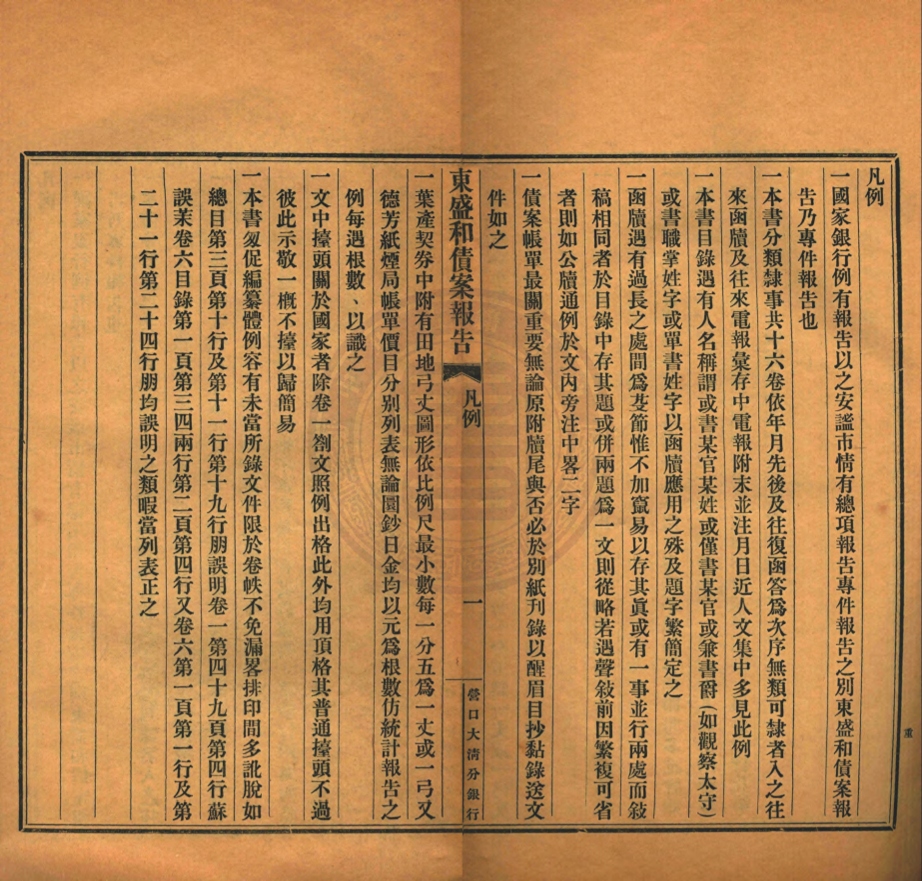 凡例
一國家銀行例有報告以之安謐市情有總項報告專件報告之別東盛和債案報
告乃專件報告也
一本書分類隸事共十六卷依年月先後及往復函答爲次序無類可隸者入之往
來函牘及往來電報彙存中電報附末並注月日近人文集中多見此例
一本書目錄遇有人名稱謂或書某官某姓或僅書某官或兼書爵(如觀察太守)
或書職掌姓字或單書姓字以函牘應用之殊及題字繁簡定之
一函牘遇有過長之處間爲芟節惟不加竄易以存其眞或有一事並行兩處而敍
稿相同者於目錄中存其題或併兩題爲一文則從略若遇聲敍前因繁複可省
者則如公牘通例於文內旁注中畧二字
一債案帳單最關重要無論原附牘尾與否必於別紙刊錄以醒眉目抄黏錄送文
件如之
東盛和債案報告
凡例
一
營口大清分銀行
一葉產契券中附有田地弓丈圖形依比例尺最小數每一分五爲一丈或一弓又
德芳紙煙局帳單價目分別列表無論圜鈔日金均以元爲根數仿統計報告之
例每遇根數、以識之
一文中擡頭關於國家者除卷一劄文照例出格此外均用頂格其普通擡頭不過
彼此示敬一概不擡以歸簡易
一本書忽促編纂體例容有未當所錄文件限於卷帙不免漏畧排印間多訛脫如
總目第三頁第十行及第十一行第十九行朋誤明卷一第四十九頁第四行蘇
誤茉卷六目錄第一頁第三四兩行第二頁第四行又卷六第一頁第一行及第
二十一行第二十四行朋均誤明之類暇當列表正之